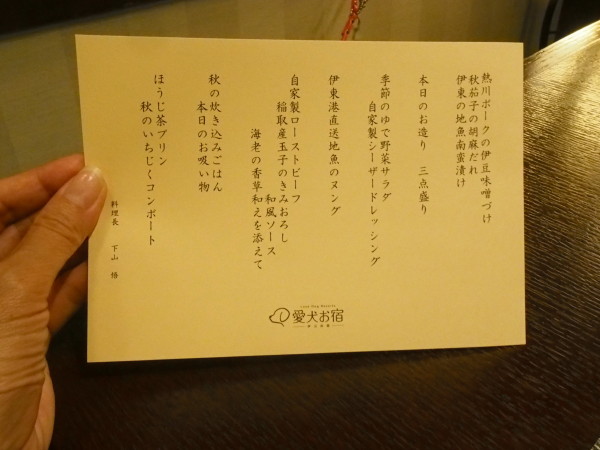 熱川ポークの伊豆味噌づけ
秋茄子の胡麻だれ
伊東の地魚南蛮漬け
本日のお造り　三点盛り
季節のゆで野菜サラダ
自家製シーザードレッシング
伊東港直送地魚のヌング
自家製ローストビーフ
稲取産玉子のきみおろし
和風ソース
海老の香草和えを添えて
秋の炊き込みごはん
本日のお吸い物
ほうじ茶プリン
秋のいちじくコンポート
料理長　下山　悟
愛犬お宿